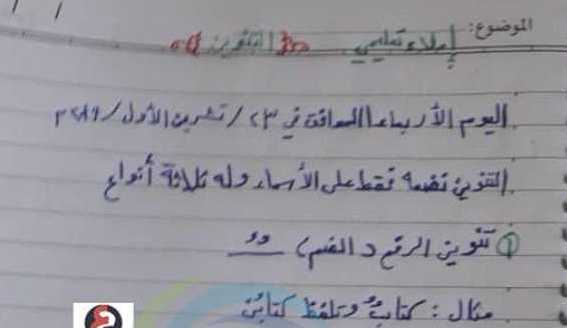 الموضوع: إملاء تعليمي «التنوين»
اليوم الأربعاء الموافق في ٢٣/تشرين الأول/٢٠١٩م
التنوين نضعه فقط على الأسماء وله ثلاثة أنواع
① تنوين الرفع (الضم) ـٌـ
مثال: كتابٌ وتلفظ كتابُن